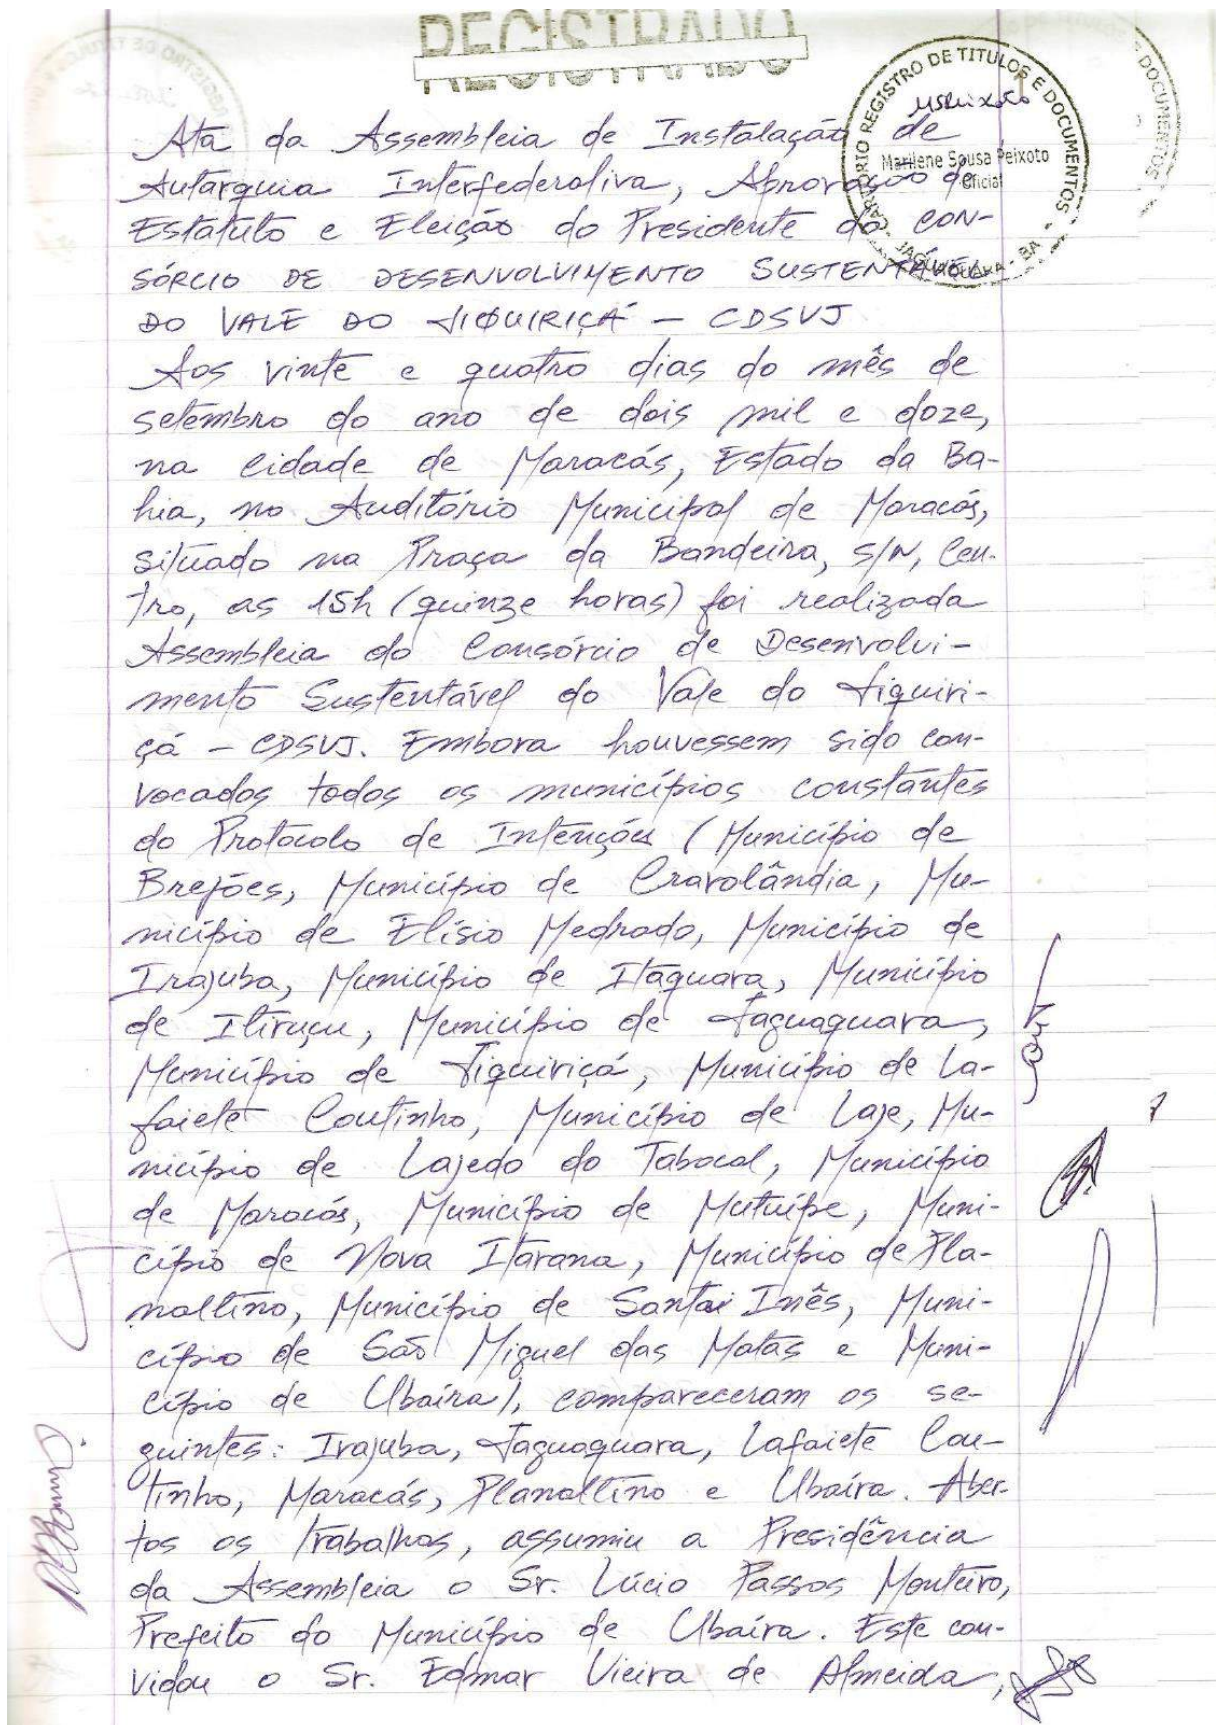 REGISTRADO
CARTÓRIO REGISTRO DE TITULOS E DOCUMENTOS
MSPeixoto
Marilene Sousa Peixoto
Oficial
JAGUAQUARA - BA
DOCUMENTOS
Ata da Assembleia de Instalação de
Autarquia Interfederativa, Aprovação do
Estatuto e Eleição do Presidente do CON-
SÓRCIO DE DESENVOLVIMENTO SUSTENTÁVEL
DO VALE DO JIQUIRIÇÁ - CDSVJ
Aos vinte e quatro dias do mês de
setembro do ano de dois mil e doze,
na cidade de Maracás, Estado da Ba-
hia, no Auditório Municipal de Maracás,
situado na Praça da Bandeira, S/N, Cen-
tro, as 15h (quinze horas) foi realizada
Assembleia do Consórcio de Desenvolvi-
mento Sustentável do Vale do Jiquiri-
çá - CDSVJ. Embora houvessem sido con-
vocados todos os municípios constantes
do Protocolo de Intenções (Município de
Brejões, Município de Cravolândia, Mu-
nicípio de Elísio Medrado, Município de
Irajuba, Município de Itaquara, Município
de Itiruçu, Município de Jaguaquara,
Município de Jiquiriçá, Município de La-
faiete Coutinho, Município de Laje, Mu-
nicípio de Lajedo do Tabocal, Município
de Maracás, Município de Mutuípe, Muni-
cípio de Nova Itarana, Município de Pla-
naltino, Município de Santa Inês, Muni-
cípio de São Miguel das Matas e Muni-
cípio de Ubaíra), compareceram os se-
guintes: Irajuba, Jaguaquara, Lafaiete Cou-
tinho, Maracás, Planaltino e Ubaíra. Aber-
tos os trabalhos, assumiu a Presidência
da Assembleia o Sr. Lúcio Passos Monteiro,
Prefeito do Município de Ubaíra. Este con-
vidou o Sr. Edmar Vieira de Almeida,